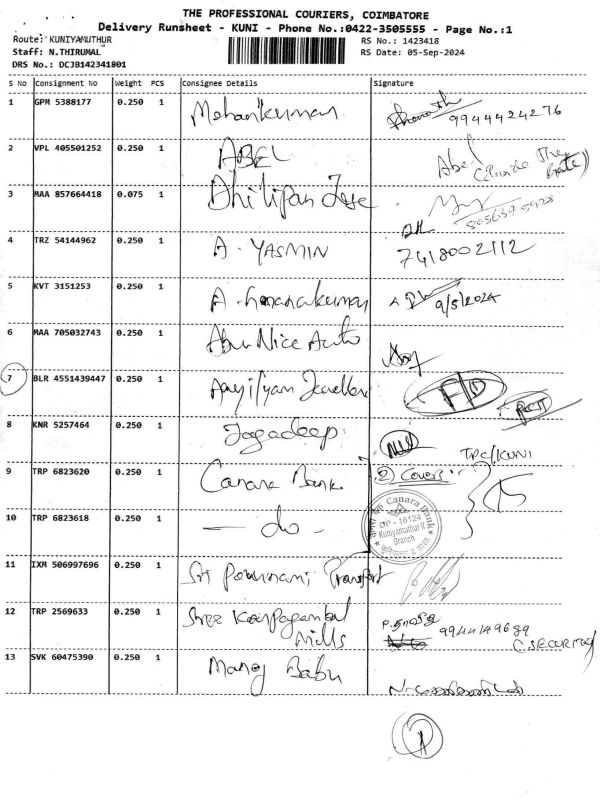 THE PROFESSIONAL COURIERS, COIMBATORE
Delivery Runsheet - KUNI - Phone No.:0422-3505555 - Page No.:1
Route: KUNIYAMUTHUR RS No.: 1423418
Staff: N.THIRUMAL RS Date: 05-Sep-2024
DRS No.: DCJB142341801
S No Consignment No Weight PCS Consignee Details Signature
1 GPM 5388177 0.250 1 Mohankumar 9944424276
2 VPL 405501252 0.250 1 ABEL Abel
3 MAA 857664418 0.075 1 Dhilipan Jose
4 TRZ 54144962 0.250 1 A. YASMIN 7418002112
5 KVT 3151253 0.250 1 9/5/2024
6 MAA 705032743 0.250 1 Abu Nice Auto
7 BLR 4551439447 0.250 1 Aayilyam Jewellery
8 KNR 5257464 0.250 1 Jagadeep
TPC/KUNI
9 TRP 6823620 0.250 1 Canara Bank 2 Cover
Canara Bank
DP - 16124
Kuniyamuthur II
Branch
10 TRP 6823618 0.250 1 - do -
11 IXM 506997696 0.250 1 Sri Pournami Transport
12 TRP 2569633 0.250 1 Shree Karpagambal
Mills 9944149689
C. SECURITY
13 SVK 60475390 0.250 1 Manoj Babu